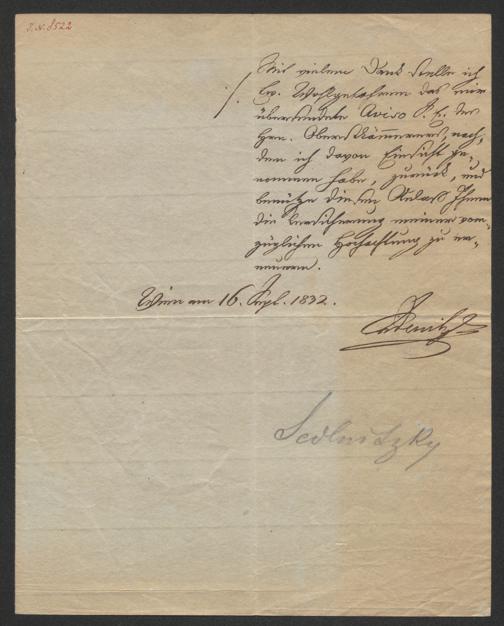 I.N. 8522
Mit vielem Dank stelle ich
Ew. Wohlgebohren das mir
übersendete Aviso S. E. des
Hrn. Oberstkämmerers, nach-
dem ich davon Einsicht ge-
nommen habe, zurück, und
benütze diesen Anlaß Ihnen
die Versicherung meiner vor-
züglichen Hochachtung zu er-
neuern.
Wien am 16. Sept. 1832.
Sedlnitzky